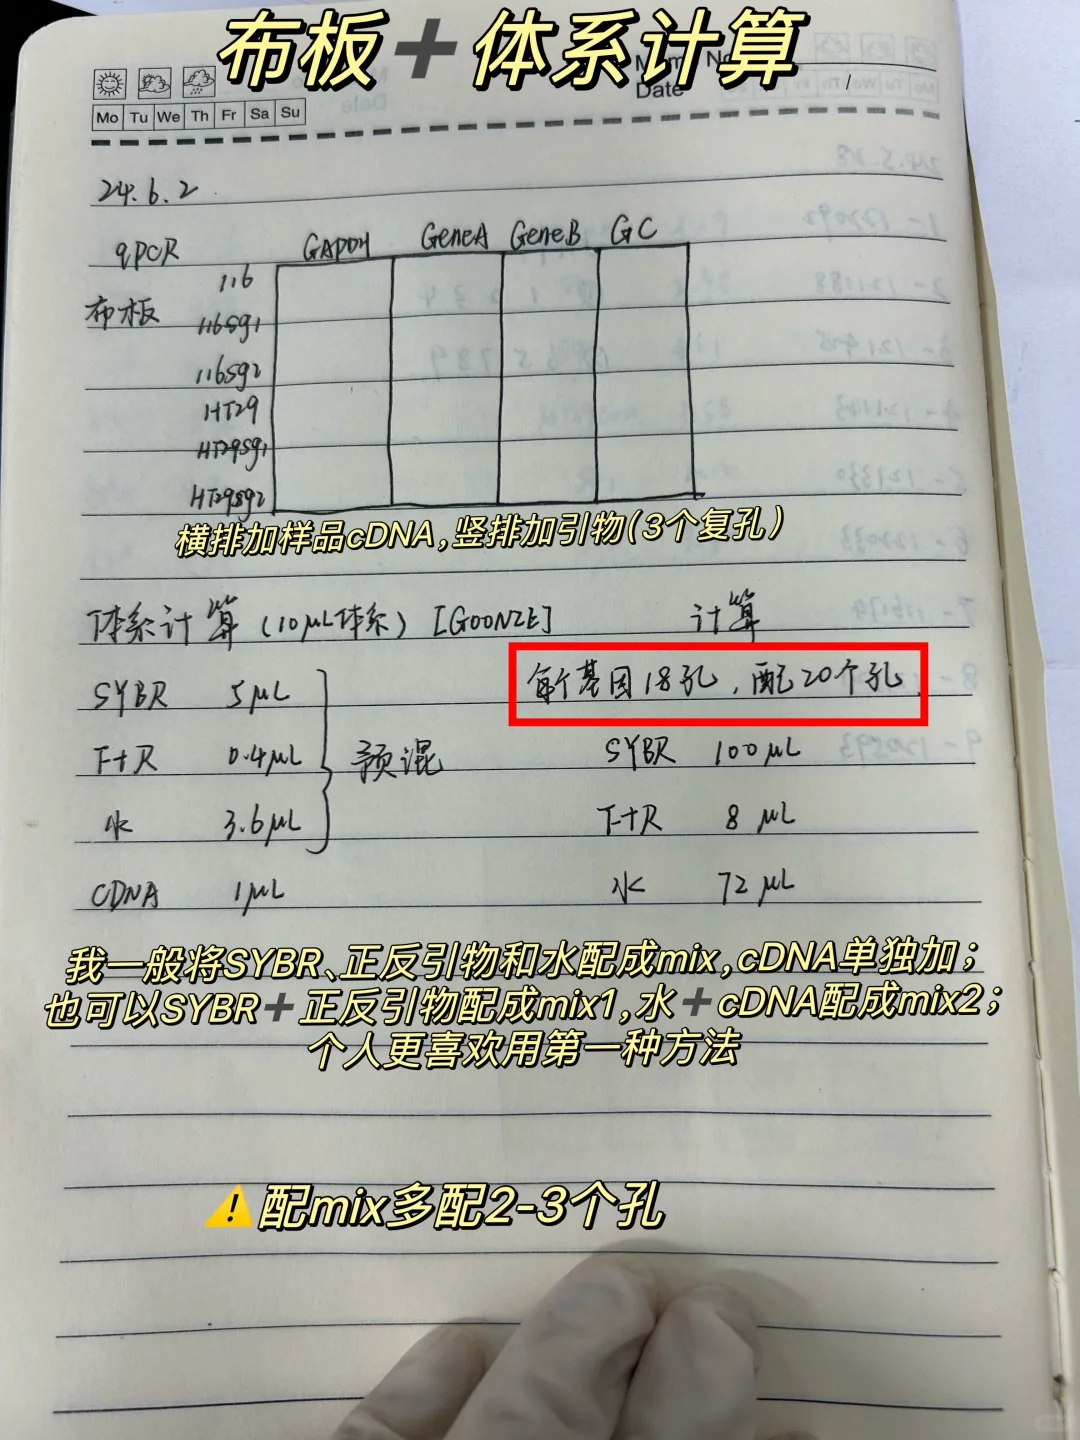 布板➕体系计算
Mo Tu We Th Fr Sa Su
Date /
24.6.2
qPCR GAPDH GeneA GeneB GC
布板
116
116sg1
116sg2
HT29
HT29sg1
HT29sg2
横排加样品cDNA,竖排加引物(3个复孔)
体系计算(10μL体系) [GOONZE] 计算
每个基因18孔,配20个孔
SYBR 5μL
F+R 0.4μL
水 3.6μL
预混
CDNA 1μL
SYBR 100μL
F+R 8μL
水 72μL
我一般将SYBR、正反引物和水配成mix,cDNA单独加;
也可以SYBR➕正反引物配成mix1,水➕cDNA配成mix2;
个人更喜欢用第一种方法
⚠️配mix多配2-3个孔